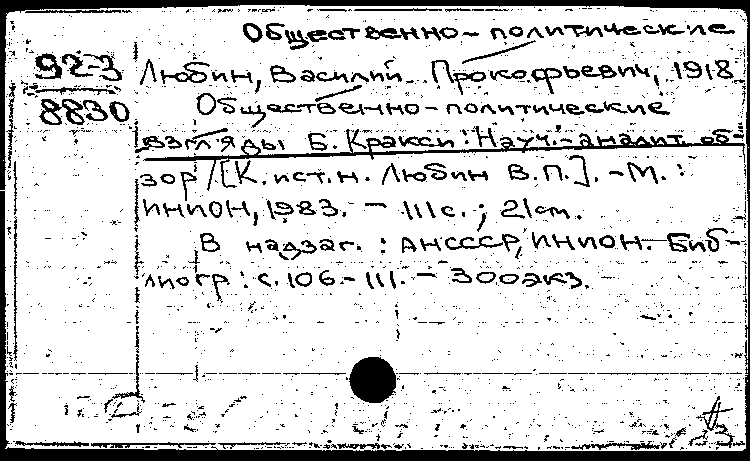 Общественно-политические
92-3
8830
Любин, Василий Прокофьевич, 1918
Общественно-политические
взгляды Б. Кракси: Науч.-аналит. об-
зор / [К. ист. н. Любин В.П.]. - М. :
ИНИОН, 1983. - 111 с. ; 21 см.
В надзаг. : АН СССР, ИНИОН. Биб-
лиогр : с. 106-111. - 300 экз.